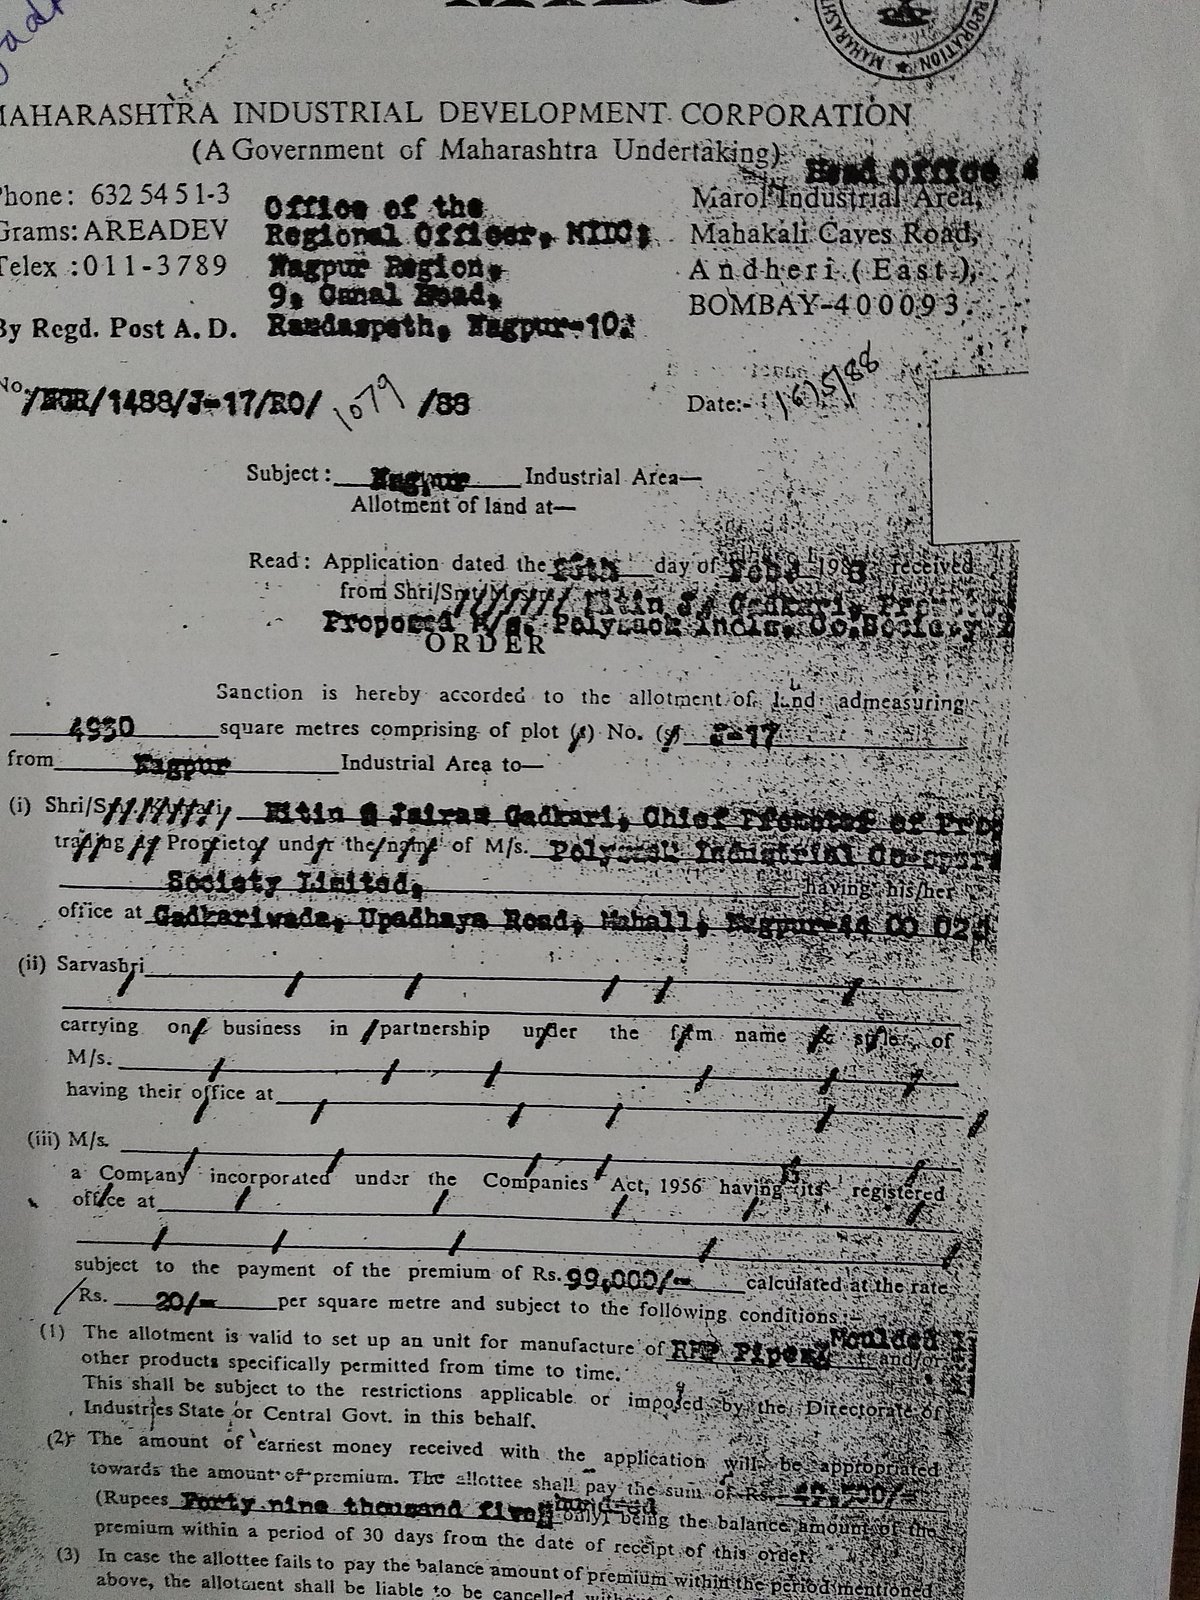 MAHARASHTRA
MAHARASHTRA INDUSTRIAL DEVELOPMENT CORPORATION
(A Government of Maharashtra Undertaking)
Head Office
Phone: 632 54 51-3
Grams: AREADEV
Telex : 011-3789
By Regd. Post A. D.
Office of the
Regional Officer, MIDC,
Nagpur Region,
9, Canal Road,
Ramdaspeth, Nagpur-10.
Marol Industrial Area,
Mahakali Caves Road,
Andheri (East),
BOMBAY-400093.
No. /1488/J-17/RO/ 1079 /88
Date:- 16/5/88
Subject: Nagpur Industrial Area—
Allotment of land at—
Read: Application dated the day of Feb. 1988 received
from Shri/Smt/Messrs Nitin J. Gadkari,
Proposed M/s. Polysack Indls. Co.Society
ORDER
Sanction is hereby accorded to the allotment of land admeasuring
4950 square metres comprising of plot (s) No. (s) J-17
from Nagpur Industrial Area to—
(i) Shri/Smt./Kumari Nitin Jairam Gadkari, Chief Promoter of
trading as Proprietor under the name of M/s. Polysack Industrial
Society Limited, having his/her
office at Gadkariwada, Upadhaya Road, Mahall, Nagpur-44 00 02.
(ii) Sarvashri
carrying on business in partnership under the firm name & style of
M/s.
having their office at
(iii) M/s.
a Company incorporated under the Companies Act, 1956 having its registered
office at
subject to the payment of the premium of Rs. 99,000/- calculated at the rate
Rs. 20/- per square metre and subject to the following conditions :—
(1) The allotment is valid to set up an unit for manufacture of RPP Pipes, Moulded and/or
other products specifically permitted from time to time.
This shall be subject to the restrictions applicable or imposed by the Directorate of
Industries State or Central Govt. in this behalf.
(2) The amount of earnest money received with the application will be appropriated
towards the amount of premium. The allottee shall pay the sum of Rs. 49,500/-
(Rupees Forty nine thousand five hundred only) being the balance amount of the
premium within a period of 30 days from the date of receipt of this order.
(3) In case the allottee fails to pay the balance amount of premium within the period mentioned
above, the allotment shall be liable to be cancelled without